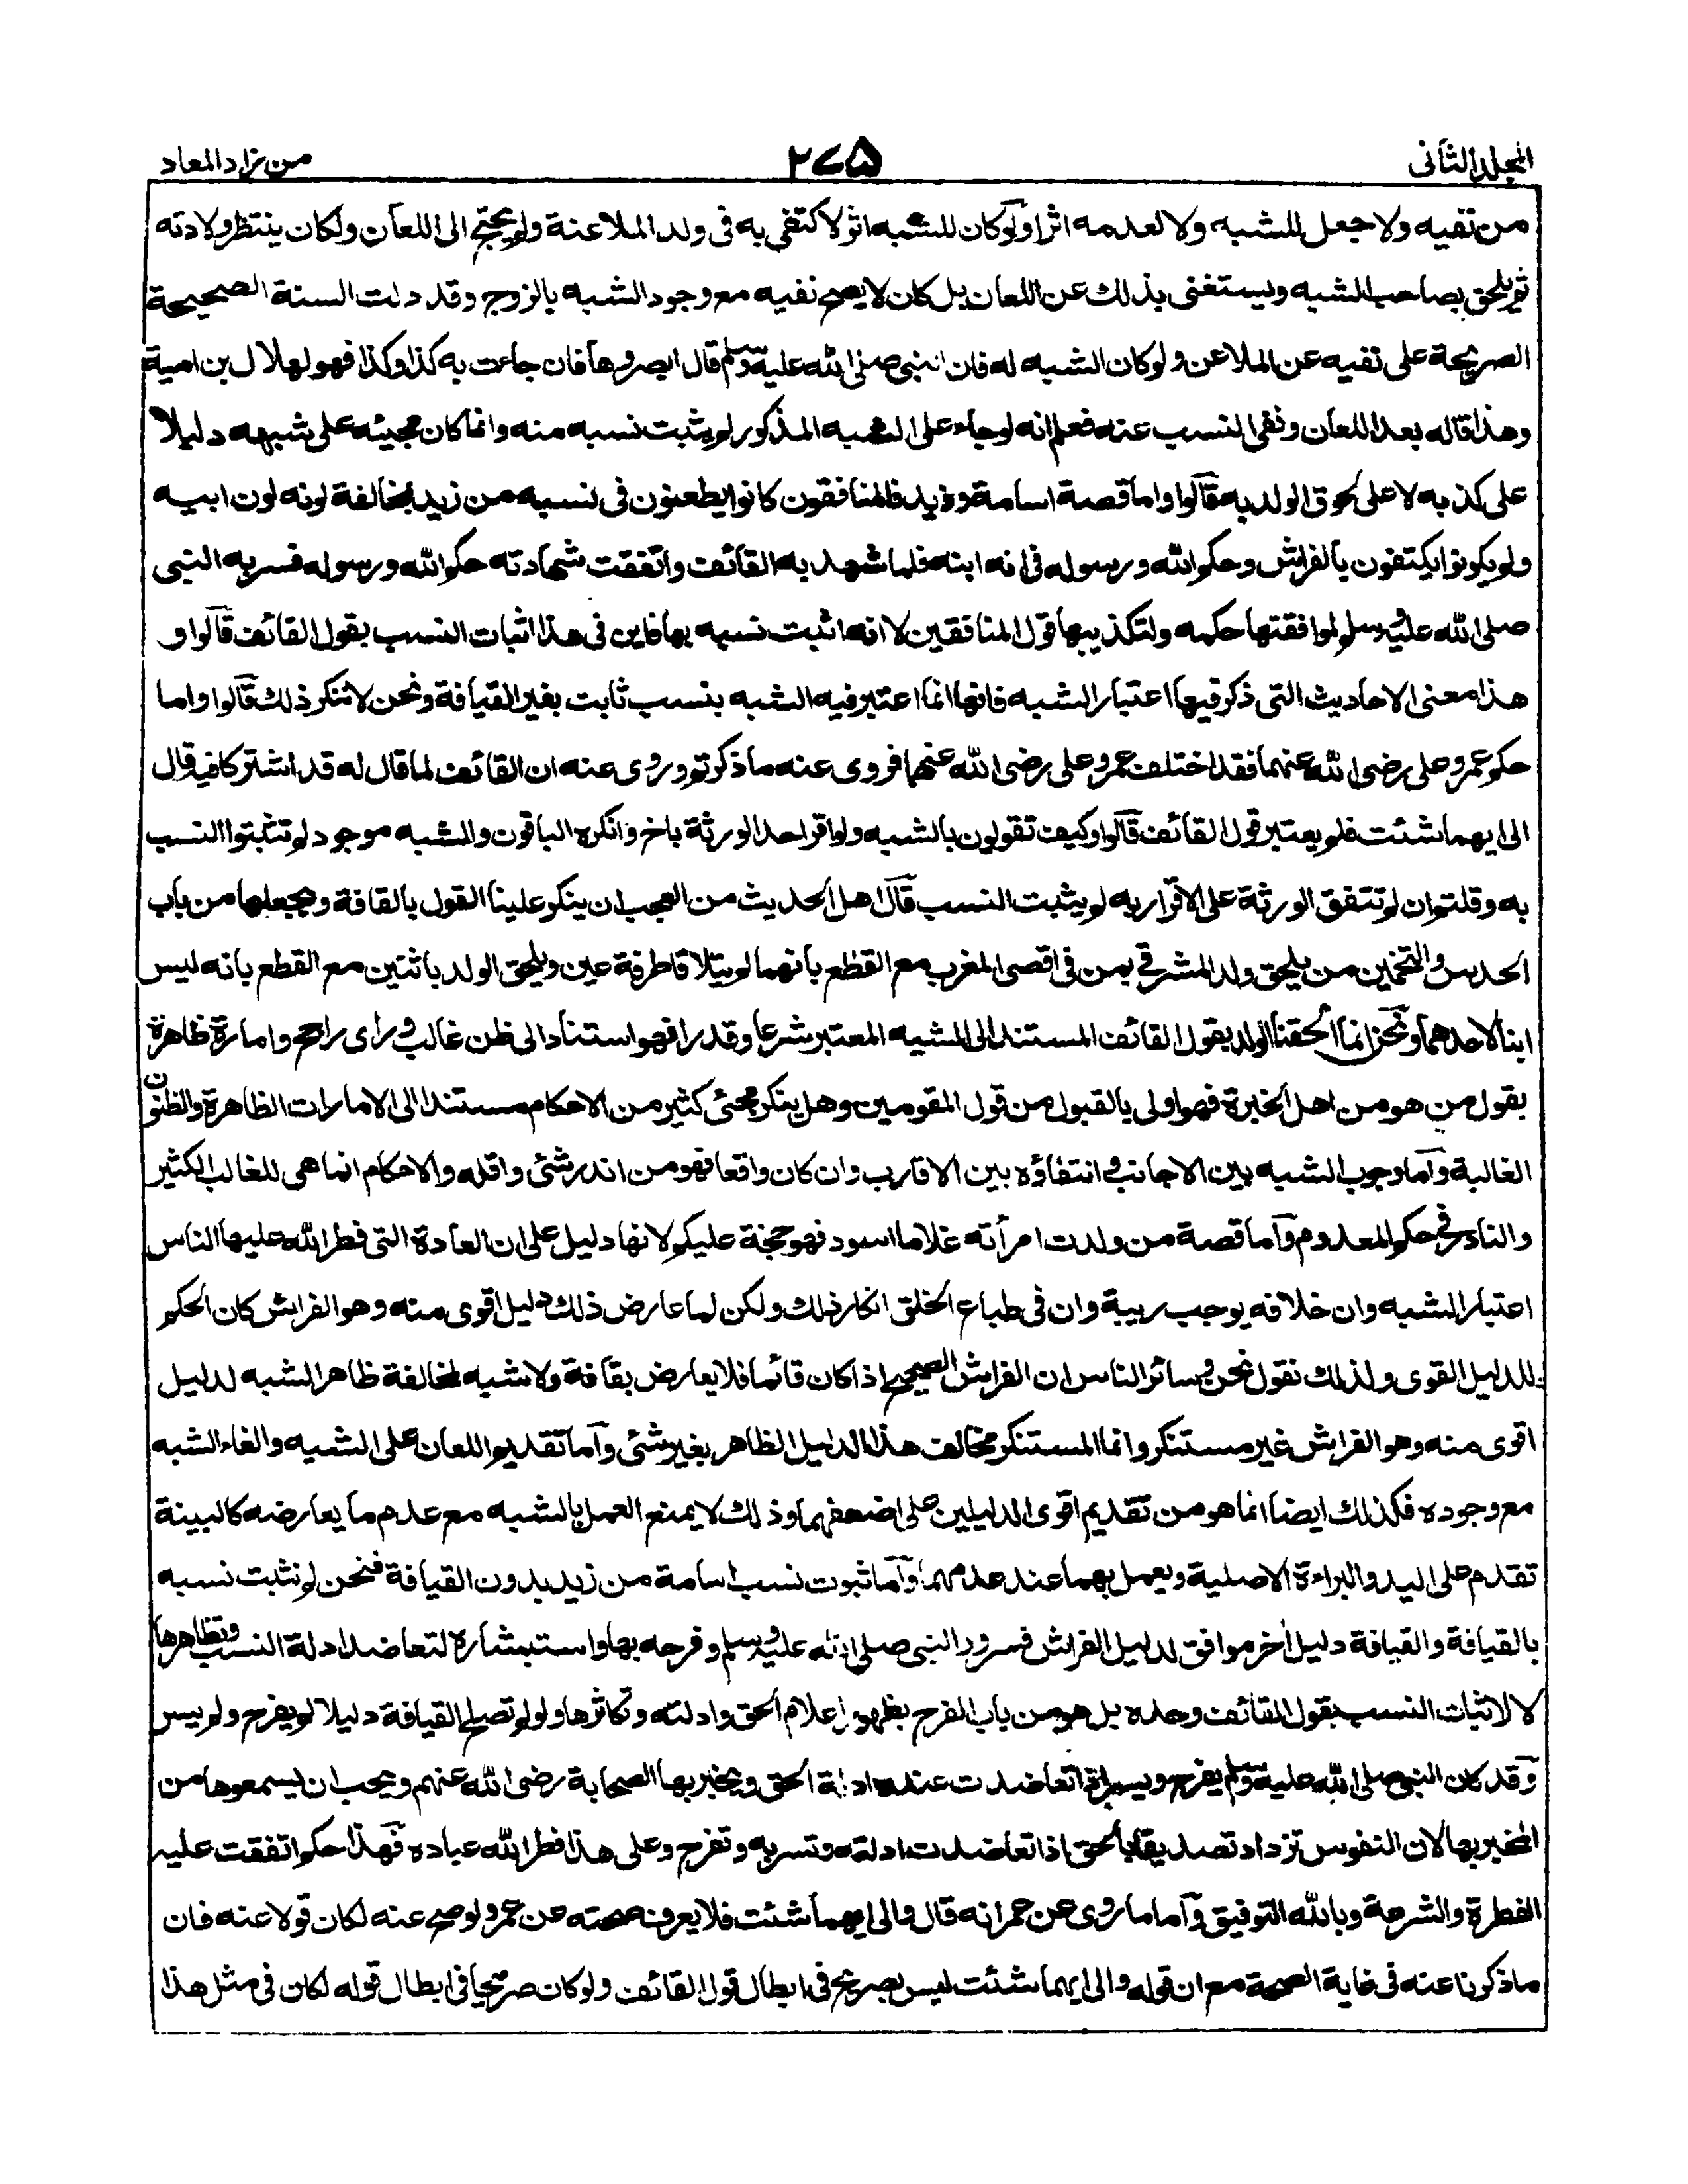 المجلد الثانى
٢٧٥
من زاد المعاد
من نفيه ولا جعل للشبه ولا لعدمه اثرا ولو كان للشبه اثر لاكتفى به فى ولد الملاعنة ولم يحتج الى اللعان ولكان ينتظر ولادته
ثم يلحق بصاحب الشبه ويستغنى بذلك عن اللعان بل كان لا يصح نفيه مع وجود الشبه بالزوج وقد دلت السنة الصحيحة
الصريحة على نفيه عن الملاعن ولو كان الشبه له فان النبى صلى الله عليه وسلم قال ابصروها فان جاءت به كذا وكذا فهو لهلال بن امية
وهذا قاله بعد اللعان ونفى النسب عنه فعلم انه لو جاء على الشبه المذكور لم يثبت نسبه منه وانما كان مجيئه على شبهه دليلا
على كذبه لا على لحوق الولد به قالوا واما قصة اسامة وزيد فالمنافقون كانوا يطعنون فى نسبه من زيد لمخالفة لونه لون ابيه
ولم يكونوا يكتفون بالفراش وحكم الله ورسوله فى انه ابنه فلما شهد به القائف واتفقت شهادته حكم الله ورسوله فسر به النبى
صلى الله عليه وسلم لموافقتها حكمه ولتكذيبها قول المنافقين لا انه اثبت نسبه بها فاين فى هذا اثبات النسب بقول القائف قالوا و
هذا معنى الاحاديث التى ذكر فيها اعتبار الشبه فانها انما اعتبر فيه الشبه بنسب ثابت بغير القيافة ونحن لا ننكر ذلك قالوا واما
حكم عمر وعلى رضى الله عنهما فقد اختلف عمر وعلى رضى الله عنهما فروى عنه ما ذكرتم وروى عنه ان القائف لما قال له قد اشتركا فيه قال
الى ايهما شئت فلم يعتبر قول القائف قالوا وكيف تقولون بالشبه ولو اقر احد الورثة باخ وانكره الباقون والشبه موجود لم تثبتوا النسب
به وقلتم ان لم تتفق الورثة على الاقرار به لم يثبت النسب قال اهل الحديث من العجب ان ينكر علينا القول بالقافة ويجعلها من باب
الحدس والتخمين من يلحق ولد المشرقى بمن فى اقصى المغرب مع القطع بانهما لم يتلاقا طرفة عين ويلحق الولد باثنين مع القطع بانه ليس
ابنا لاحدهما ونحن انما الحقنا الولد بقول القائف المستند الى الشبه المعتبر شرعا وقدرا فهو استناد الى ظن غالب وراى راجح وامارة ظاهرة
بقول من هو من اهل الخبرة فهو اولى بالقبول من قول المقومين وهل ينكر مجئ كثير من الاحكام مستندا الى الامارات الظاهرة والظنون
الغالبة واما وجوب الشبه بين الاجانب وانتفاؤه بين الاقارب وان كان واقعا فهو من اندر شئ واقله والاحكام انما هى للغالب الكثير
والنادر فى حكم المعدوم واما قصة من ولدت امرأته غلاما اسود فهو حجة عليكم لانها دليل على ان العادة التى فطر الله عليها الناس
اعتبار الشبه وان خلافه يوجب ريبة وان فى طباع الخلق انكار ذلك ولكن لما عارض ذلك دليل اقوى منه وهو الفراش كان الحكم
للدليل القوى ولذلك نقول نحن وسائر الناس ان الفراش الصحيح اذا كان قائما فلا يعارض بقافة ولا شبه لمخالفة ظاهر الشبه لدليل
اقوى منه وهو الفراش غير مستنكر وانما المستنكر مخالف هذا الدليل الظاهر بغير شئ واما تقديم اللعان على الشبه والغاء الشبه
مع وجوده فكذلك ايضا انما هو من تقديم اقوى الدليلين على اضعفهما وذلك لا يمنع العمل بالشبه مع عدم ما يعارضه كالبينة
تقدم على اليد والبراءة الاصلية ويعمل بهما عند عدمهما واما ثبوت نسب اسامة من زيد بدون القيافة فنحن لم نثبت نسبه
بالقيافة والقيافة دليل أخر موافق لدليل الفراش فسرور النبى صلى الله عليه وسلم وفرحه بها واستبشاره لتعاضد ادلة النسب وتظاهرها
لا لاثبات النسب بقول القائف وحده بل هو من باب الفرح بظهور اعلام الحق وادلته وتكاثرها ولو لم تصلح القيافة دليلا لم يفرح ولم يسر
وقد كان النبى صلى الله عليه وسلم يفرح ويسر اذا تعاضدت عنده ادلة الحق ويخبر بها الصحابة رضى الله عنهم ويحب ان يسمعوها من
المخبر بها لان النفوس تزداد تصديقا بالحق اذا تعاضدت ادلته وتسر به وتفرح وعلى هذا فطر الله عباده فهذا حكم اتفقت عليه
الفطرة والشرعة وبالله التوفيق واما ما روى عن عمر انه قال وال ايهما شئت فلا يعرف صحته عن عمر ولو صح عنه لكان قولا عنه فان
ما ذكرنا عنه فى غاية الصحة مع ان قوله وال ايهما شئت ليس بصريح فى ابطال قول القائف ولو كان صريحا فى ابطال قوله لكان فى مثل هذا